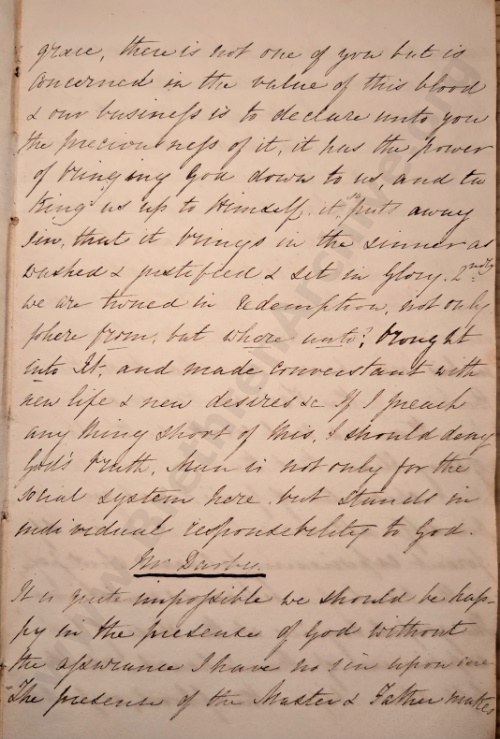 grace, there is not one of you but is
concerned in the value of this blood
& our business is to declare unto you
the preciousness of it, it has the power
of bringing God down to us, and ta
king us up to Himself, it so puts away
sin, that it brings in the sinner as
washed & justified & set in Glory. 2ndly
we are in redemption, not only
where from, but where unto? brought
into It, and made converstant with
new life & new desires &c If I preach
any thing short of this, I should deny
God's truth. Man is not only for the
social system here but stands in
individual responsibility to God.
Mr Darby.
It is quite impossible we should be hap-
py in the presense of God without
the assurance I have no sin upon me
The presense of the Master & Father makes